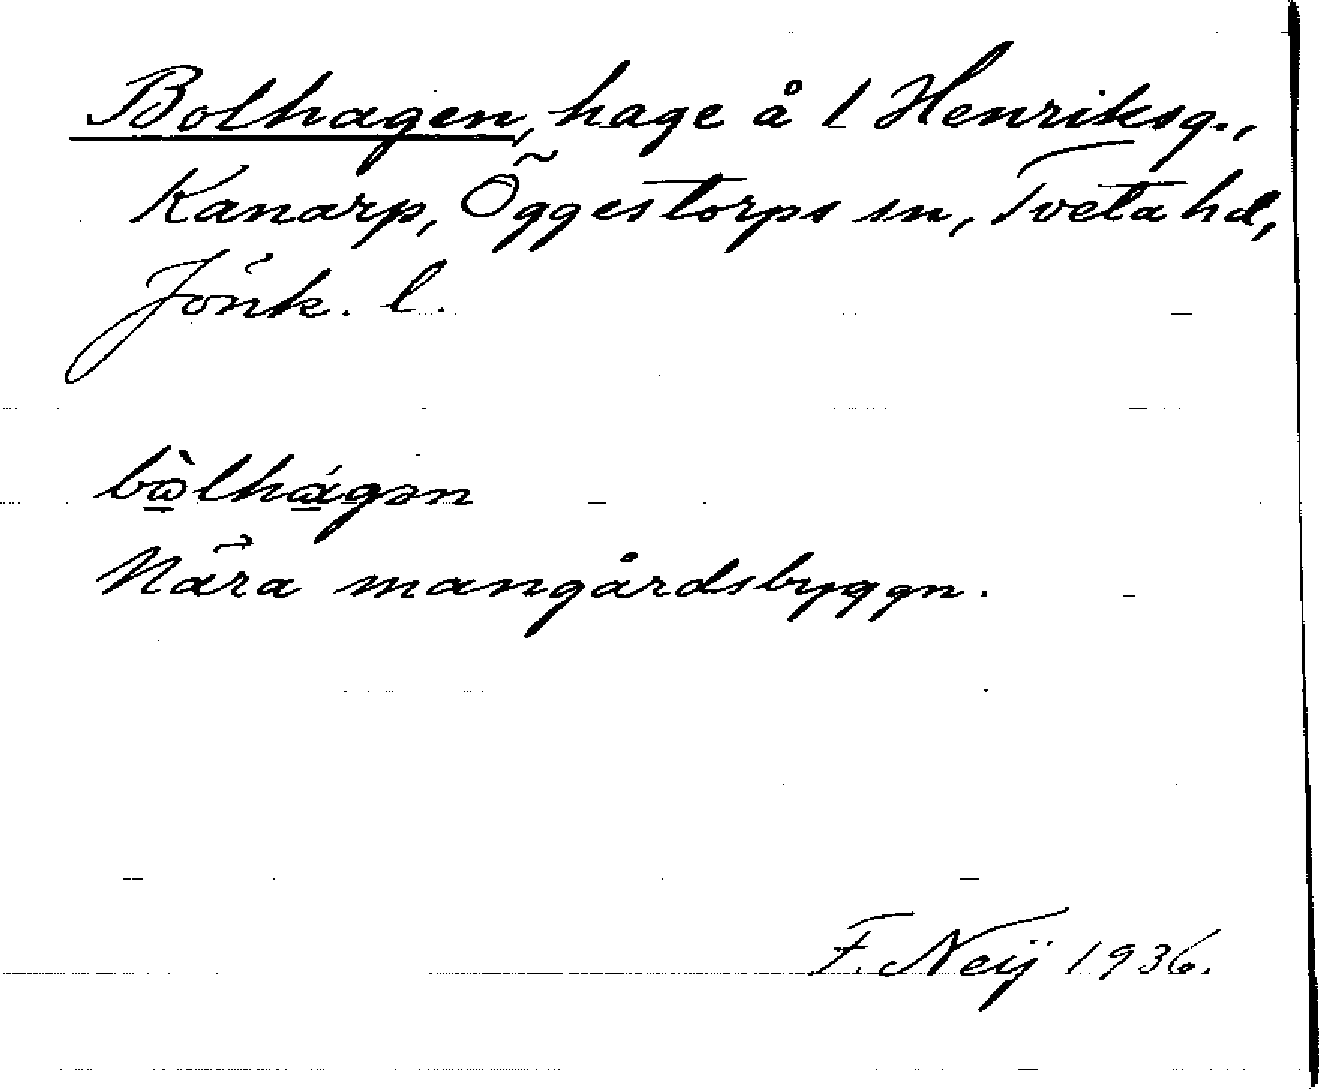 Bolhagen, hage å 1 Henriksg.,
Kanarp, Öggestorps sn, Tveta hd,
Jönk. l.
bὼ̲lhά̲gən
Nära mangårdsbyggn.
F. Neij 1936.